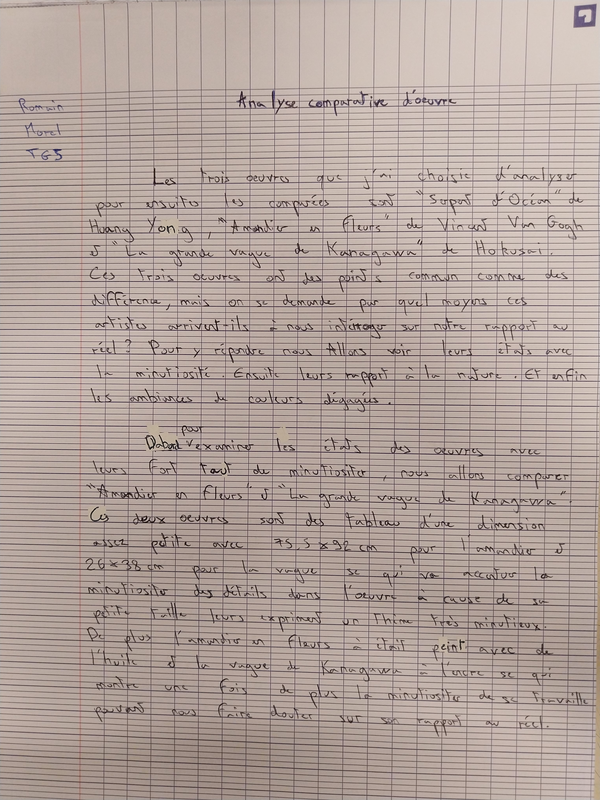 Analyse comparative d'oeuvre
Romain
Morel
TG5
Les trois oeuvres que j'ai choisie d'analyser
pour ensuites les comparées sont "Serpent d'Océan" de
Huang Yong, "Amandier en fleurs" de Vincent Van Gogh
et "La grande vague de Kanagawa" de Hokusai.
Ces trois oeuvres ont des points commun comme des
différence, mais on se demande par quel moyens ces
artistes arrivent-ils à nous intéroger sur notre rapport au
réel ? Pour y répondre nous Allons voir leurs états avec
la minutiosité. Ensuite leurs rapport à la nature. Et enfin
les ambiances de couleurs dégagées.
pour
Dabord examiner les états des oeuvres avec
leurs fort taut de minutiositer, nous allons comparer
"Amandier en fleurs" et "La grande vague de Kanagawa".
Ces deux oeuvres sont des tableau d'une dimension
assez petite avec 75,5x92 cm pour l'amandier et
26x38 cm pour la vague se qui va accentuer la
minutiositer des détails dans l'oeuvre à cause de sa
petite taille leurs expriment un thème très minutieux.
De plus l'amandier en fleurs à était peint avec de
l'huile et la vague de Kanagawa à l'encre se qui
montre une fois de plus la minutiositer de se travaille
pouvant nous faire douter sur son rapport au réel.